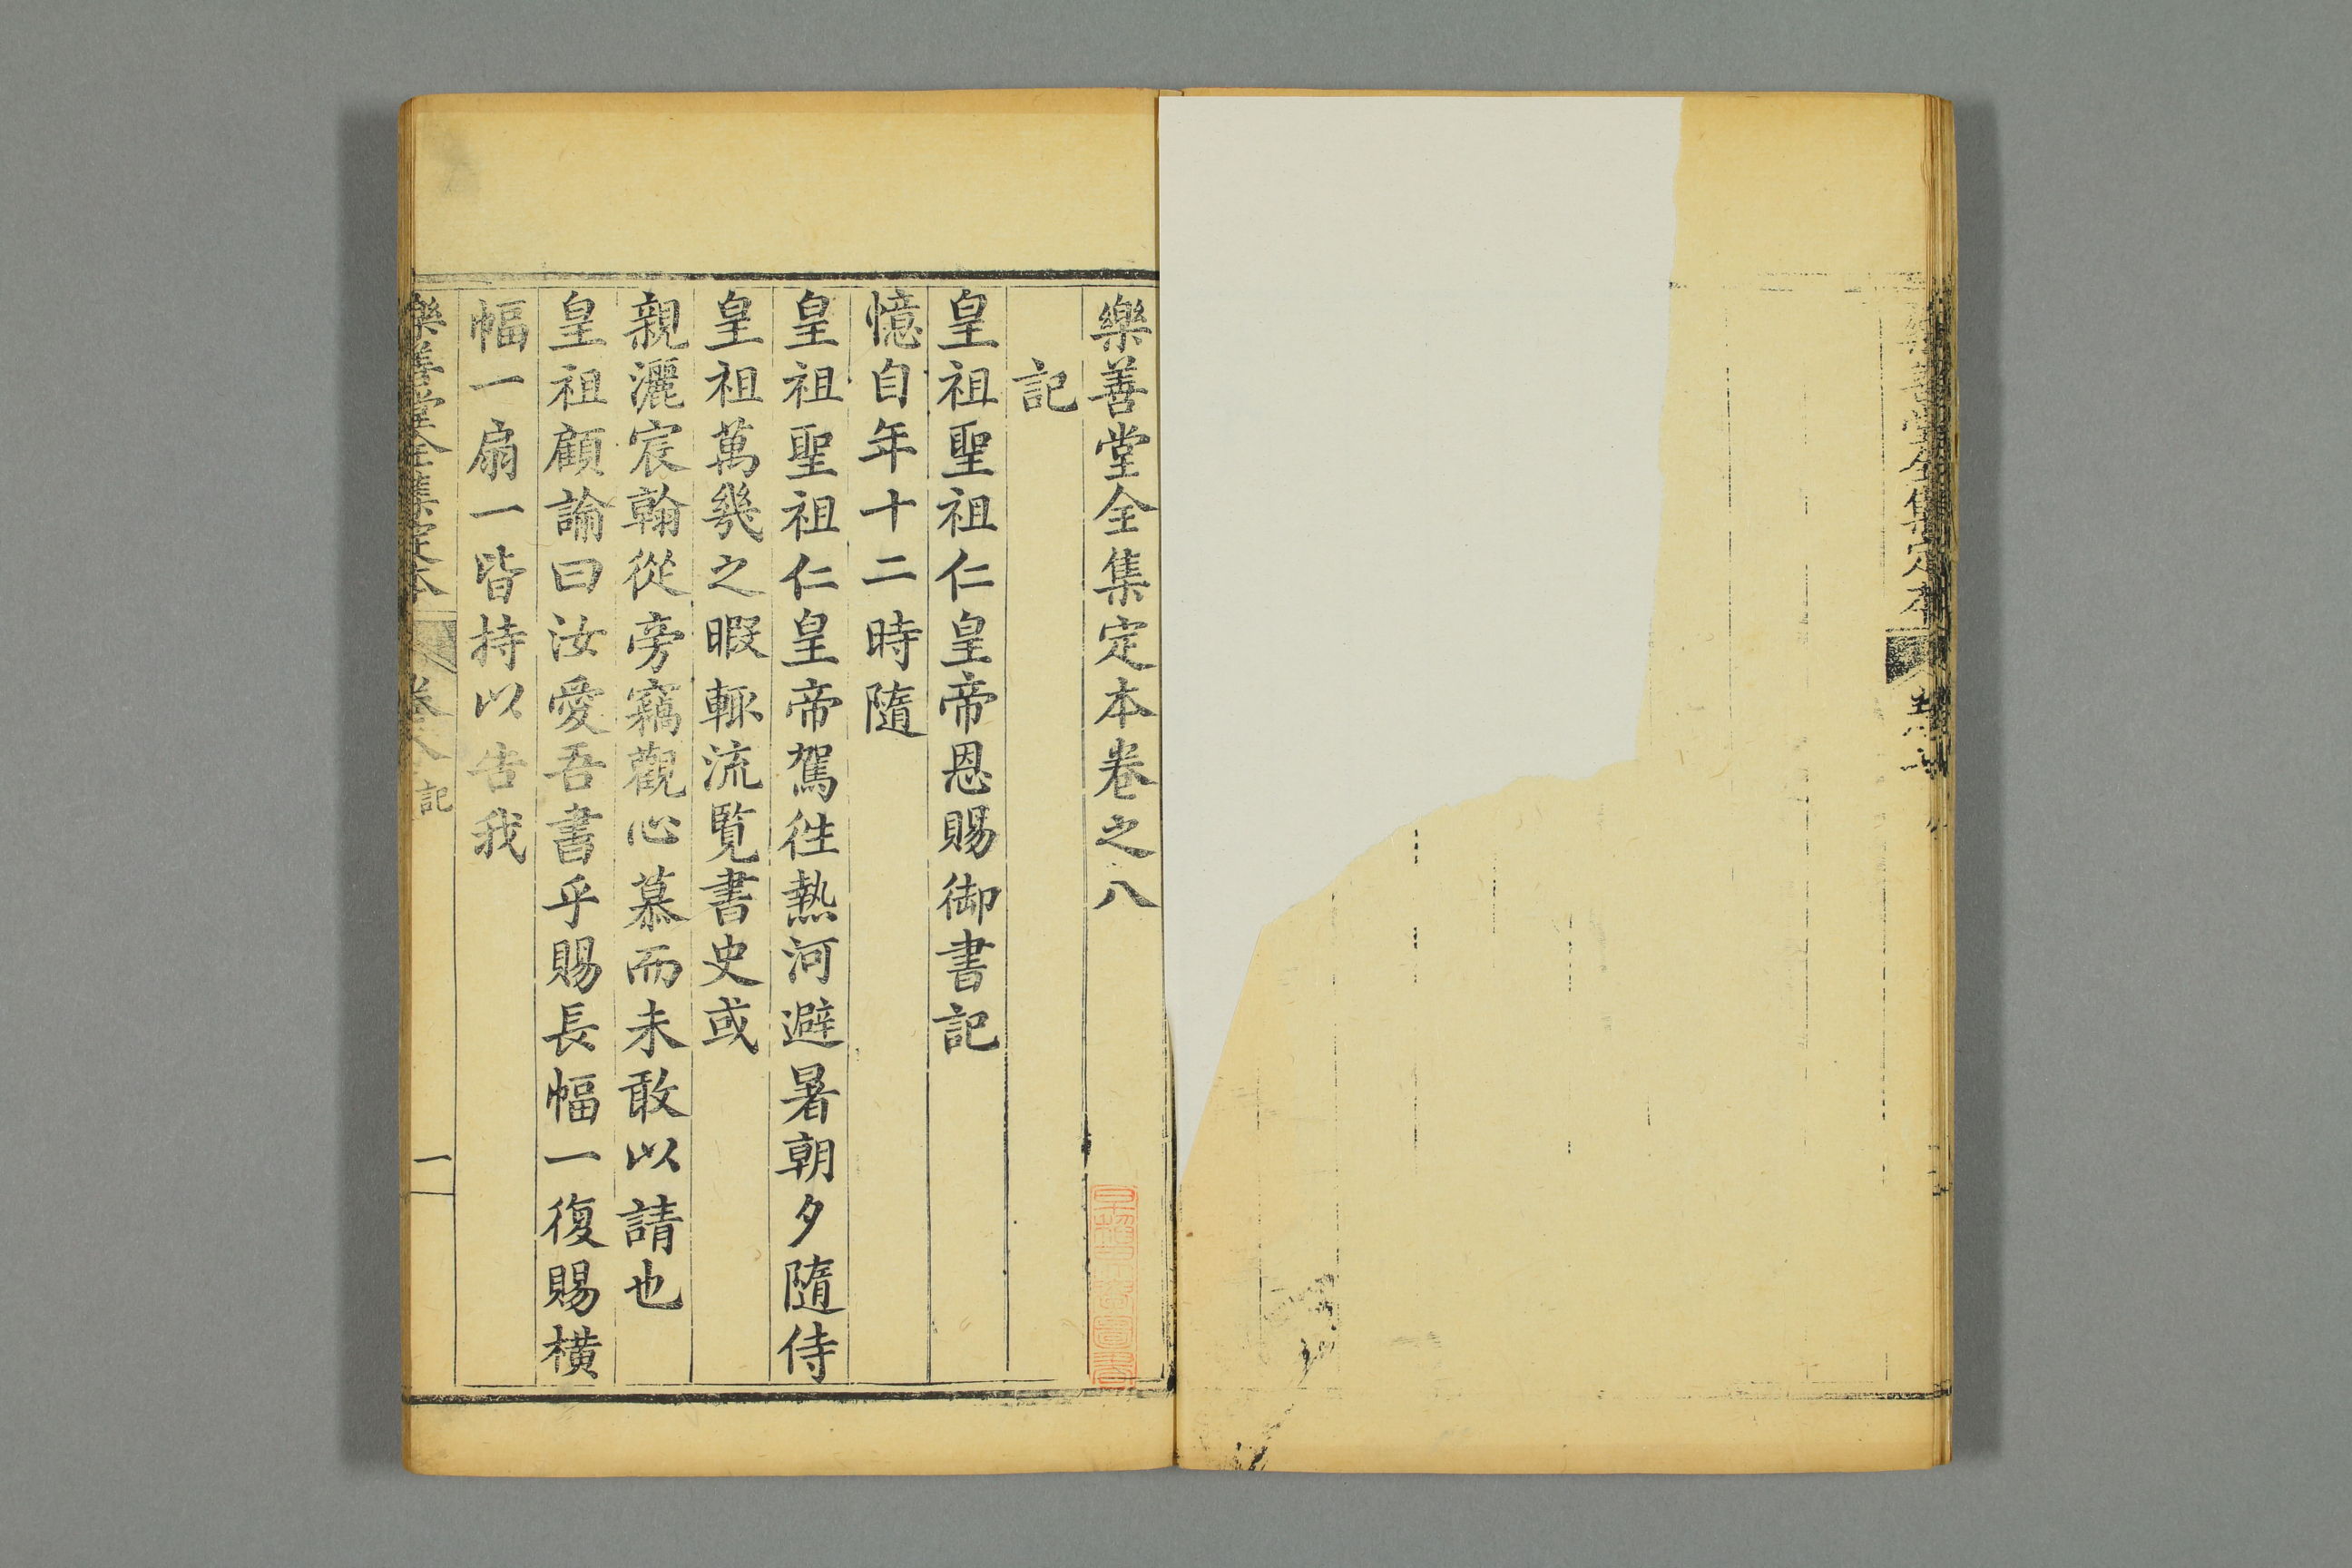 樂善堂全集定本卷之八
記
皇祖聖祖仁皇帝恩賜御書記
憶自年十二時隨
皇祖聖祖仁皇帝駕徃熱河避暑朝夕隨侍
皇祖萬幾之暇輒流覽書史或
親灑宸翰從旁竊觀心慕而未敢以請也
皇祖顧諭曰汝愛吾書乎賜長幅一復賜橫
幅一扇一皆持以告我
樂善堂全集定本
卷八
記
一
樂善堂全集定本